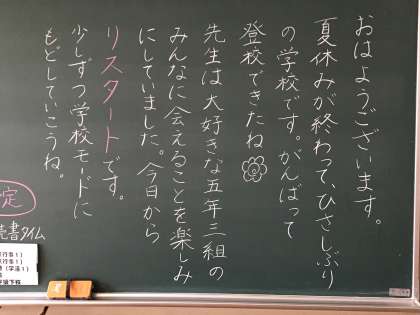 おはようございます。
夏休みが終わって、ひさしぶり
の学校です。がんばって
登校できたね
先生は大好きな五年三組の
みんなに会えることを楽しみ
にしていました。今日から
リスタートです。
少しずつ学校モードに
もどしていこうね。
定
読書タイム